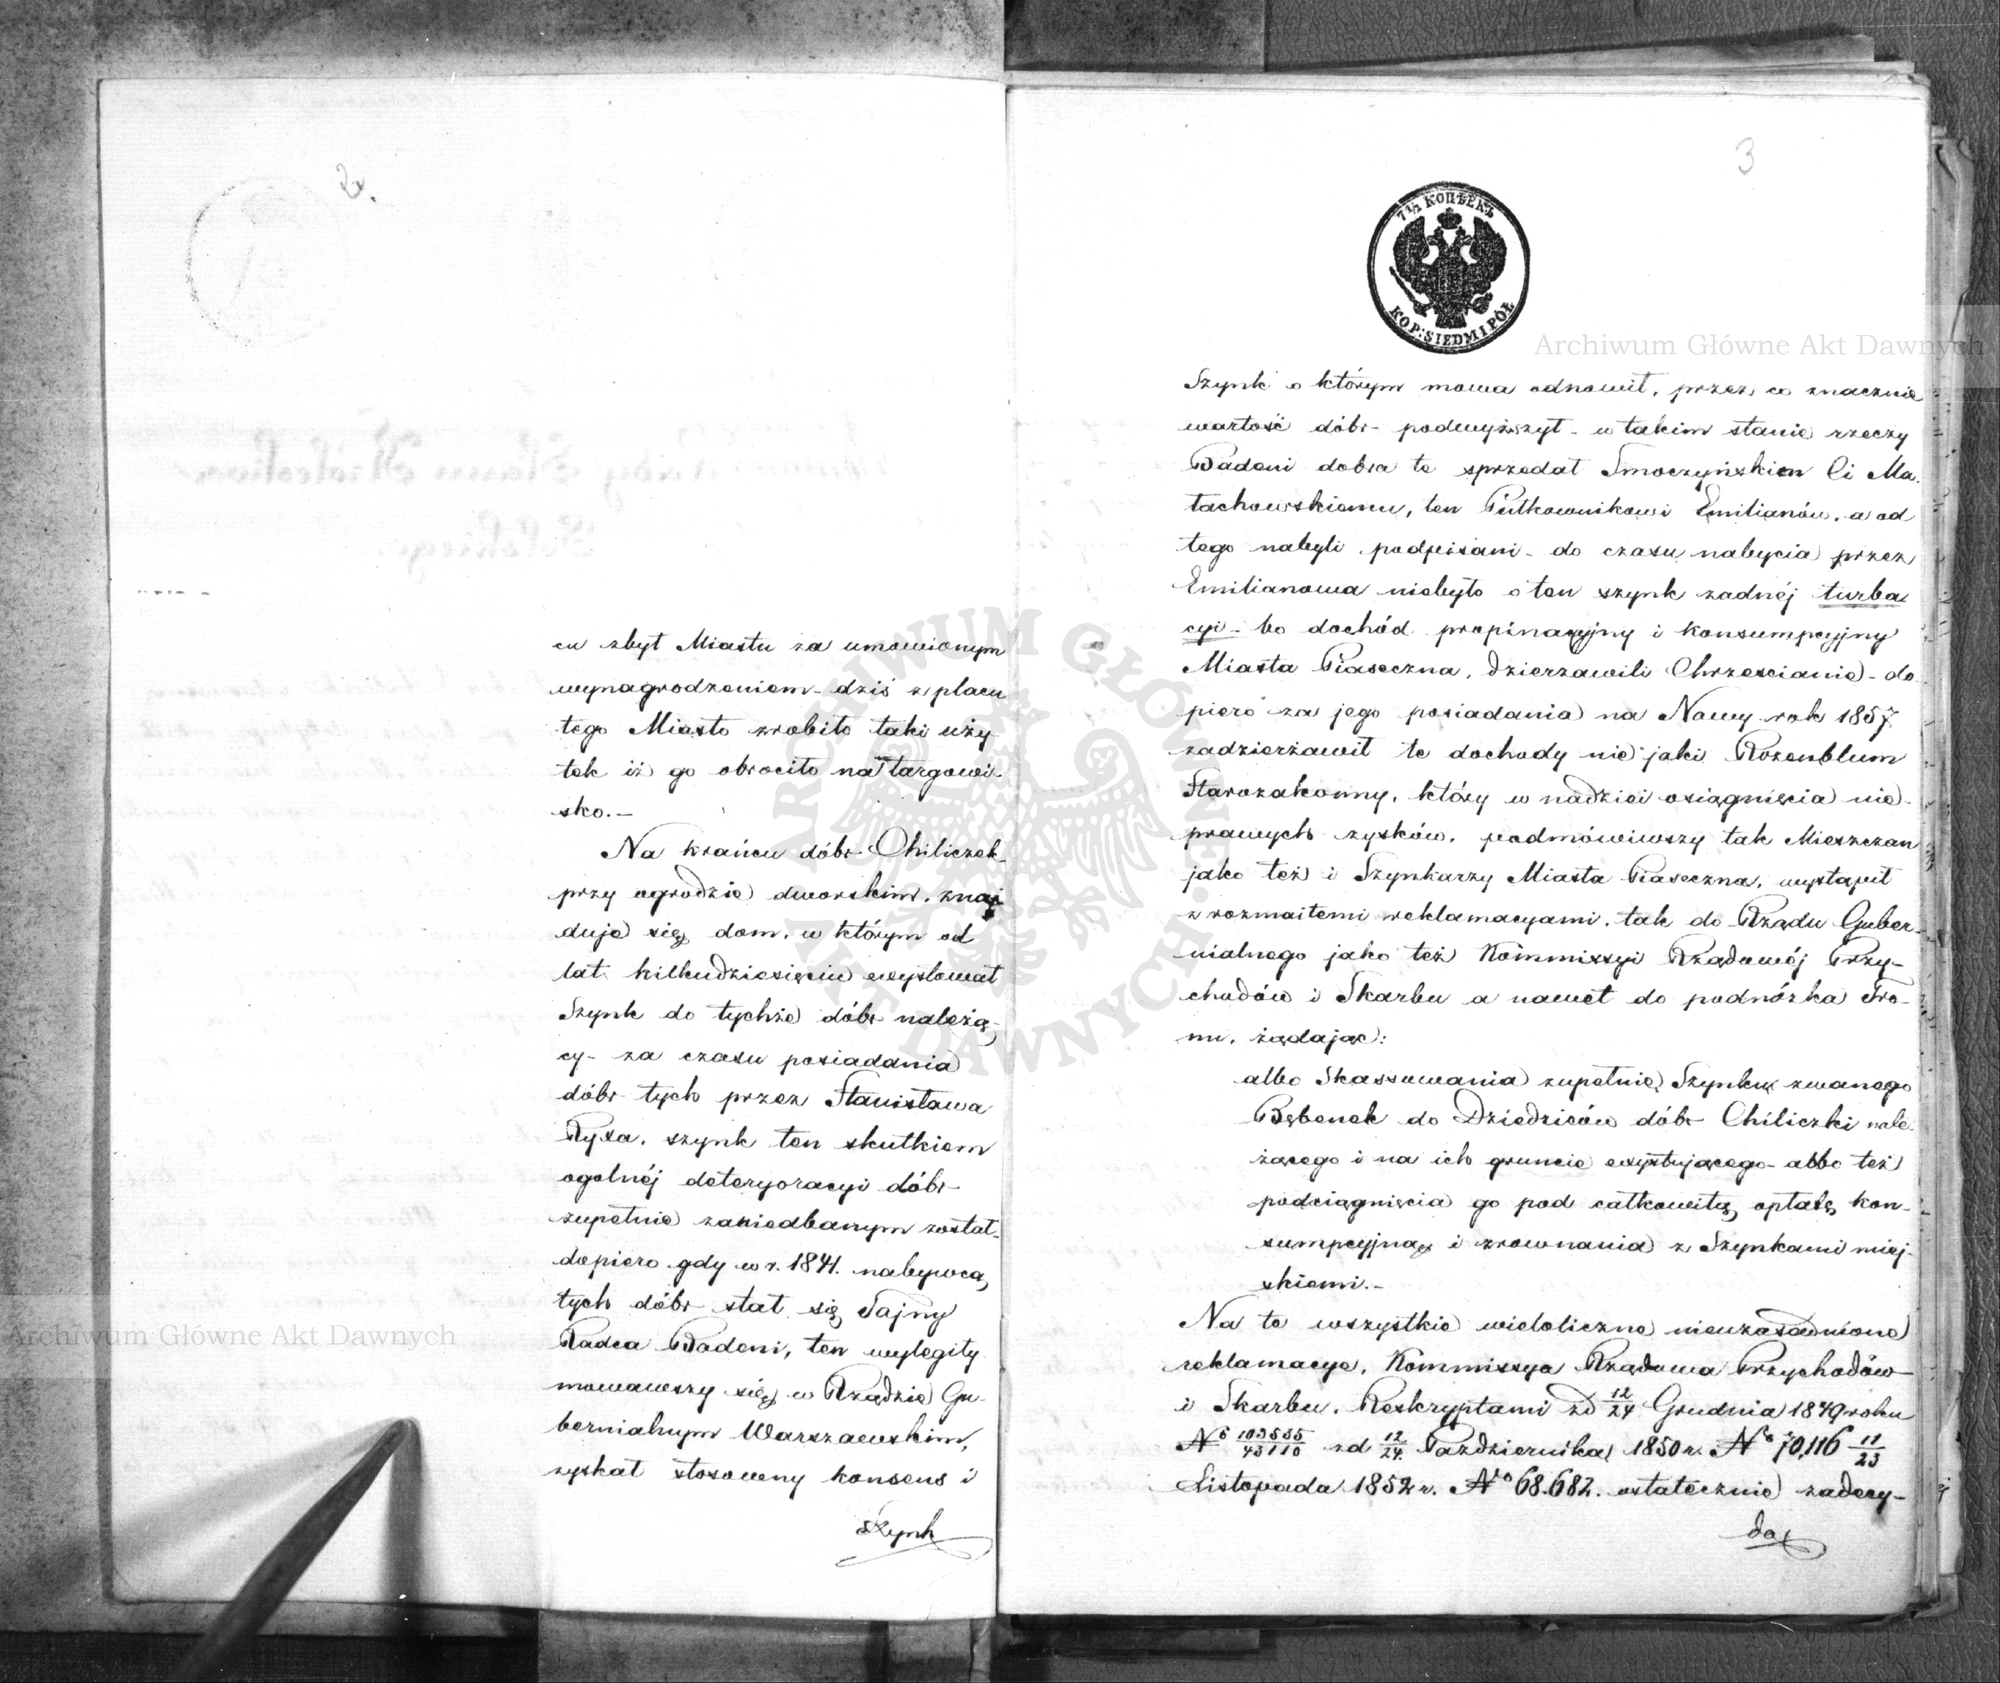 2.
cu zbyt Miastu za umowionym
wynagrodzeniem - dziś z placu
tego Miasto zrobiło taki uży
tek iż go obrociło na targowi-
sko. -
Na krańcu dóbr Chiliczek
przy ogrodzie dworskim, znaj
duje się dom, w którym od
lat kilkudziesięciu exystował
Szynk do tychże dóbr należą-
cy - za czasu posiadania
dóbr tych przez Stanisława
Ryxa, szynk ten skutkiem
ogolnéj deterjoracyi dóbr
zupełnie zaniedbanym został -
dopiero gdy w r. 1841. nabywcą
tych dóbr stał się Tajny
Radca Badeni, ten wylegity
mowawszy się w Rządzie Gu-
bernialnym Warszawskim,
zyskał stosowny konsens i
szynk
3
7½ КОПѢЕКЪ
KOP: SIEDM I PÓŁ
Szynk o którym mowa odnowił, przez co znacznie
wartość dóbr podwyższył - w takim stanie rzeczy
Badeni dobra te sprzedał Smoczyńskiem Ci Ma-
łachowskiemu, ten Pułkownikowi Emilianów, a od
tego nabyli podpisani - do czasu nabycia przez
Emilianowa niebyło o ten szynk żadnéj turba
cyi - bo dochód propinacyjny i konsumpcyjny
Miasta Piaseczna, dzierzawili Chrześcianie - do
piero za jego posiadania na Nowy rok 1857.
zadzierżawił te dochody niejaki Rozenblum
Starozakonny, który w nadziei osiągnięcia nie-
prawych zysków, podmówiwszy tak Mieszczan
jako też i Szynkarzy Miasta Piaseczna, wystąpił
z rozmaitemi reklamacyami, tak do Rządu Guber-
nialnego jako też Kommissyi Rządowéj Przy-
chodów i Skarbu a nawet do podnóżka Tro-
nu, żądając:
albo Skassowania zupełnie Szynku zwanego
Bębenek do Dziedziców dóbr Chiliczki nale-
żącego i na ich gruncie exystującego - albo też
podciągnięcia go pod całkowitą opłatę kon-
sumpcyjną i zrownania z Szynkami miej-
skiemi. -
Na te wszystkie wieloliczne nieuzasadnione
reklamacye, Kommissya Rządowa Przychodów
i Skarbu, Reskryptami zd 12/24 Grudnia 1849 roku
N° 103535/43110 zd 12/24. Października 1850 r. N° 70,116 11/23
Listopada 1852 r. Nro 68.682. ostatecznie zadecy-
do
Archiwum Główne Akt Dawnych
Archiwum Główne Akt Dawnych
ARCHIWUM GŁÓWNE AKT DAWNYCH